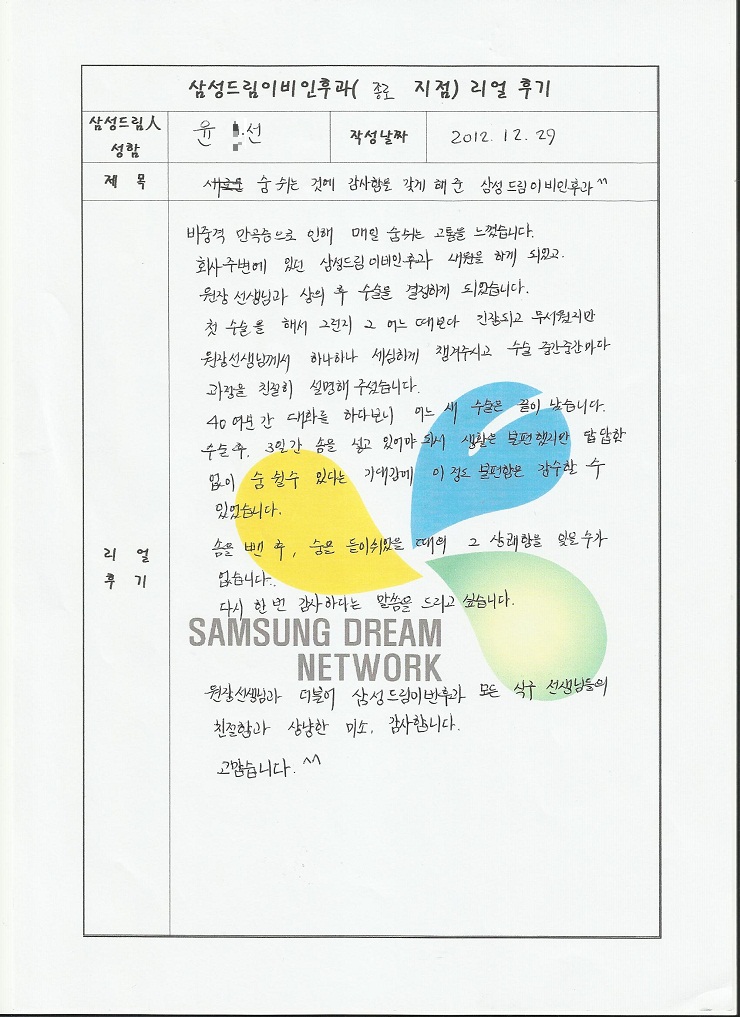 삼성드림이비인후과( 종로 지점) 리얼 후기
삼성드림人 성함
윤 선
작성날짜
2012. 12. 29
제 목
숨 쉬는 것에 감사함을 갖게 해 준 삼성드림이비인후과^^
리 얼 후 기
비중격 만곡증으로 인해 매일 숨쉬는 고통을 느꼈습니다.
회사주변에 있던 삼성드림이비인후과 내원을 하게 되었고.
원장선생님과 상의 후 수술을 결정하게 되었습니다.
첫 수술을 해서 그런지 그 어느 때보다 긴장되고 무서웠지만
원장선생님께서 하나하나 세심하게 챙겨주시고 수술 중간중간마다
과정을 친절히 설명해 주셨습니다.
40여분간 대화를 하다보니 어느 새 수술은 끝이 났습니다.
수술 후, 3일간 솜을 넣고 있어야 되서 생활은 불편했지만 답답함
없이 숨 쉴수 있다는 기대감에 이 정도 불편함은 감수할 수
있었습니다.
솜을 뺀 후, 숨을 들이쉬었을 때의 그 상쾌함을 잊을 수가
없습니다.
다시 한 번 감사하다는 말씀을 드리고 싶습니다.
SAMSUNG DREAM
NETWORK
원장선생님과 더불어 삼성드림이비인후과 모든 식구 선생님들의
친절함과 상냥한 미소, 감사합니다.
고맙습니다. ^^